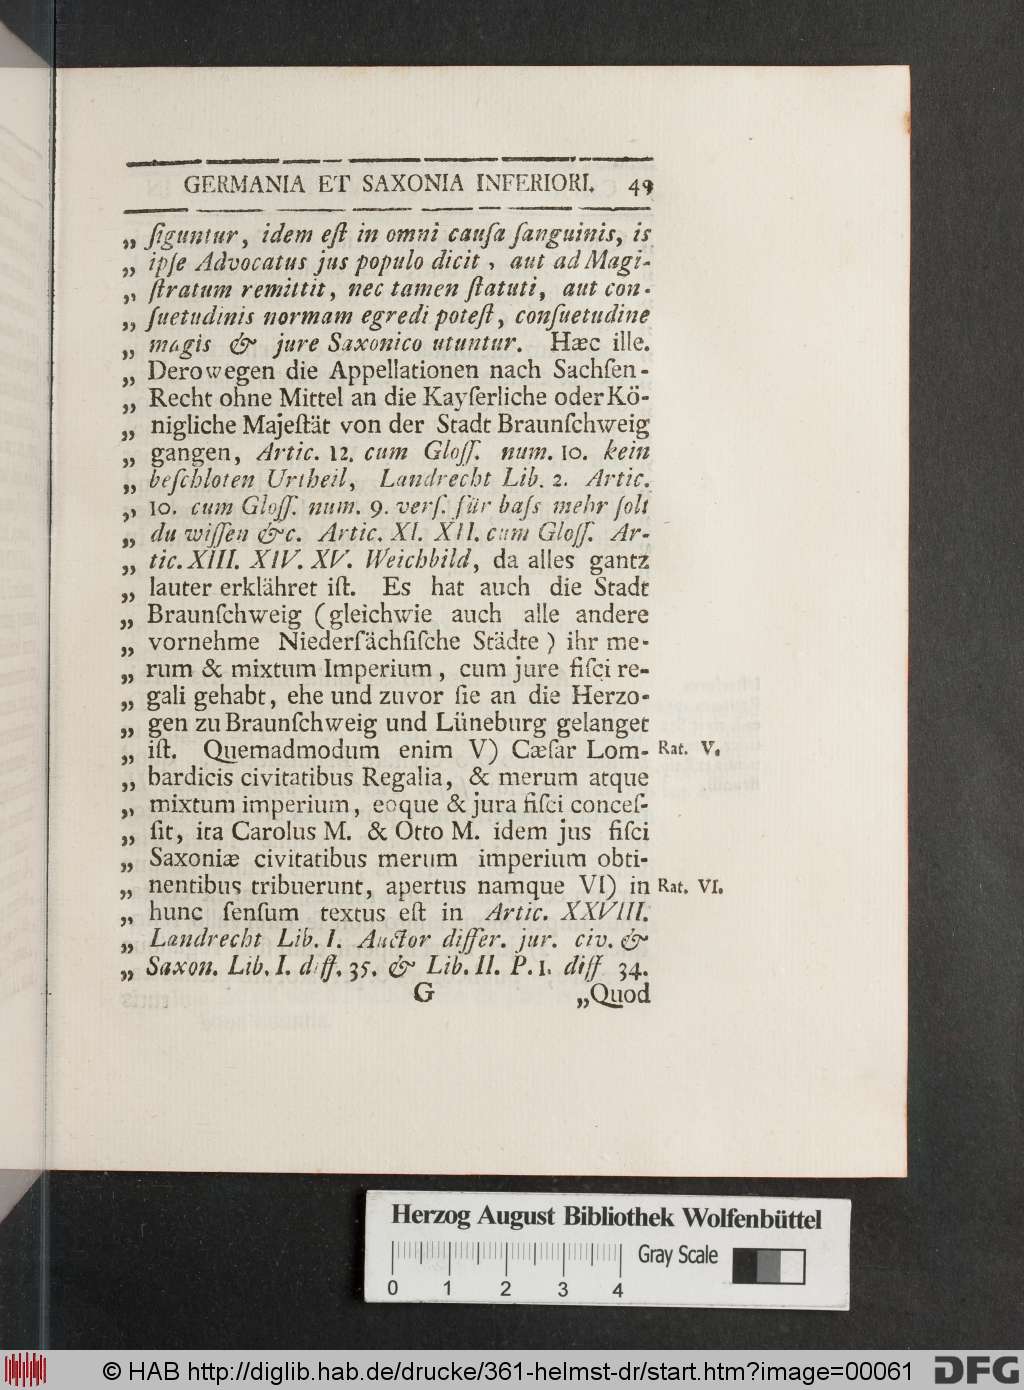 GERMANIA ET SAXONIA INFERIORI. 49
„ ſiguntur, idem eſt in omni cauſa ſanguinis, is
„ ipſe Advocatus jus populo dicit, aut ad Magi-
„ ſtratum remittit, nec tamen ſtatuti, aut con-
„ ſuetudinis normam egredi poteſt, conſuetudine
„ magis & jure Saxonico utuntur. Hæc ille.
„ Derowegen die Appellationen nach Sachſen-
„ Recht ohne Mittel an die Kayſerliche oder Kö-
„ nigliche Majeſtät von der Stadt Braunſchweig
„ gangen, Artic. 12. cum Gloſſ. num. 10. kein
„ beſchloten Urtheil, Landrecht Lib. 2. Artic.
„ 10. cum Gloſſ. num. 9. verſ. für baſs mehr ſolt
„ du wiſſen &c. Artic. XI. XII. cum Gloſſ. Ar-
„ tic. XIII. XIV. XV. Weichbild, da alles gantz
„ lauter erklähret iſt. Es hat auch die Stadt
„ Braunſchweig (gleichwie auch alle andere
„ vornehme Niederſächſiſche Städte) ihr me-
„ rum & mixtum Imperium, cum jure fiſci re-
„ gali gehabt, ehe und zuvor ſie an die Herzo-
„ gen zu Braunſchweig und Lüneburg gelanget
„ iſt. Quemadmodum enim V) Cæſar Lom- Rat. V.
„ bardicis civitatibus Regalia, & merum atque
„ mixtum imperium, eoque & jura fiſci conceſ-
„ ſit, ita Carolus M. & Otto M. idem jus fiſci
„ Saxoniæ civitatibus merum imperium obti-
„ nentibus tribuerunt, apertus namque VI) in Rat. VI.
„ hunc ſenſum textus eſt in Artic. XXVIII.
„ Landrecht Lib. I. Auctor differ. jur. civ. &
„ Saxon. Lib. I. diff. 35. & Lib. II. P. 1. diff 34.
G „Quod
Herzog August Bibliothek Wolfenbüttel
Gray Scale
0 1 2 3 4
© HAB http://diglib.hab.de/drucke/361-helmst-dr/start.htm?image=00061
DFG